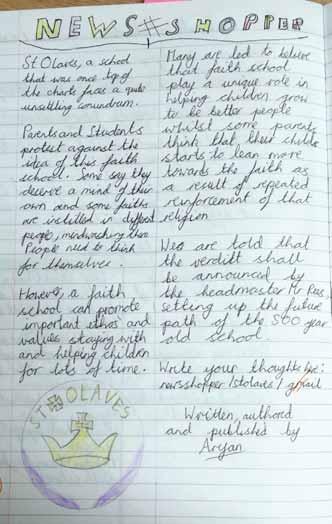 NEWS SHOPPER
St Olaves, a school
that was once top of
the charts faces a quite
unsettling conundrum.
Parents and Students
protest against the
idea of this faith
school. Some say they
deserve a mind of their
own and some faiths
are instilled in different
people, mindwashing them
People need to think
for themselves.
However, a faith
school can promote
important ethos and
values staying with
and helping children
for lots of time.
ST OLAVES
Many are led to believe
that faith school
play a unique role in
helping children grow
to be better people
whilst some parents
think that their child
starts to lean more
towards the faith as
a result of repeated
reinforcement of that
religion
We are told that
the verdict shall
be announced by
the headmaster Mr Rees
setting up the future
path of the 500 year
old school.
Write your thoughts :
newsshopper/stolaves/gmail
Written, authord
and published by
Aryan